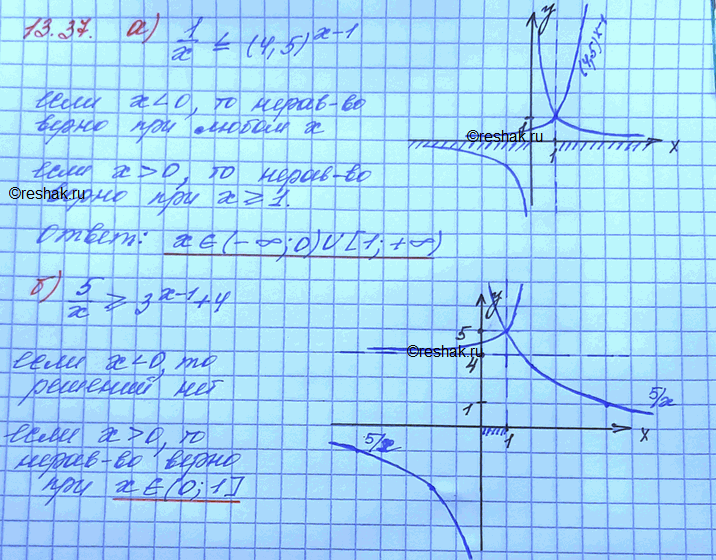 13.37. а) 1/x ≤ (4,5)^(x-1)
если x<0, то нерав-во
верно при любом x
если x>0, то нерав-во
верно при x ≥ 1.
Ответ: x∈(-∞;0)∪[1;+∞)
y
(4,5)^(x-1)
1
1
x
©reshak.ru
©reshak.ru
б) 5/x ≥ 3^(x-1)+4
если x<0, то
решений нет
если x>0, то
нерав-во верно
при x∈(0;1]
y
5
4
1
1
x
5/x
5/x
©reshak.ru